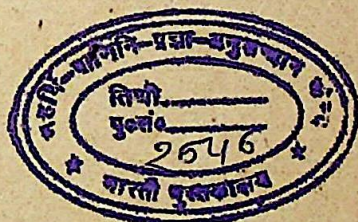 महर्षि-पाणिनि-प्रज्ञा-अनुसन्धान केन्द्र
तिथी
पु०सं०
2546
भारती पुस्तकालय